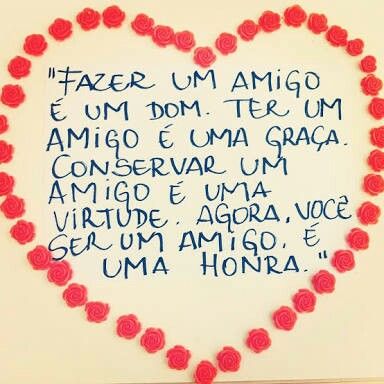 "FAZER UM AMIGO
É UM DOM. TER UM
AMIGO É UMA GRAÇA.
CONSERVAR UM
AMIGO É UMA
VIRTUDE. AGORA, VOCÊ
SER UM AMIGO, É
UMA HONRA."